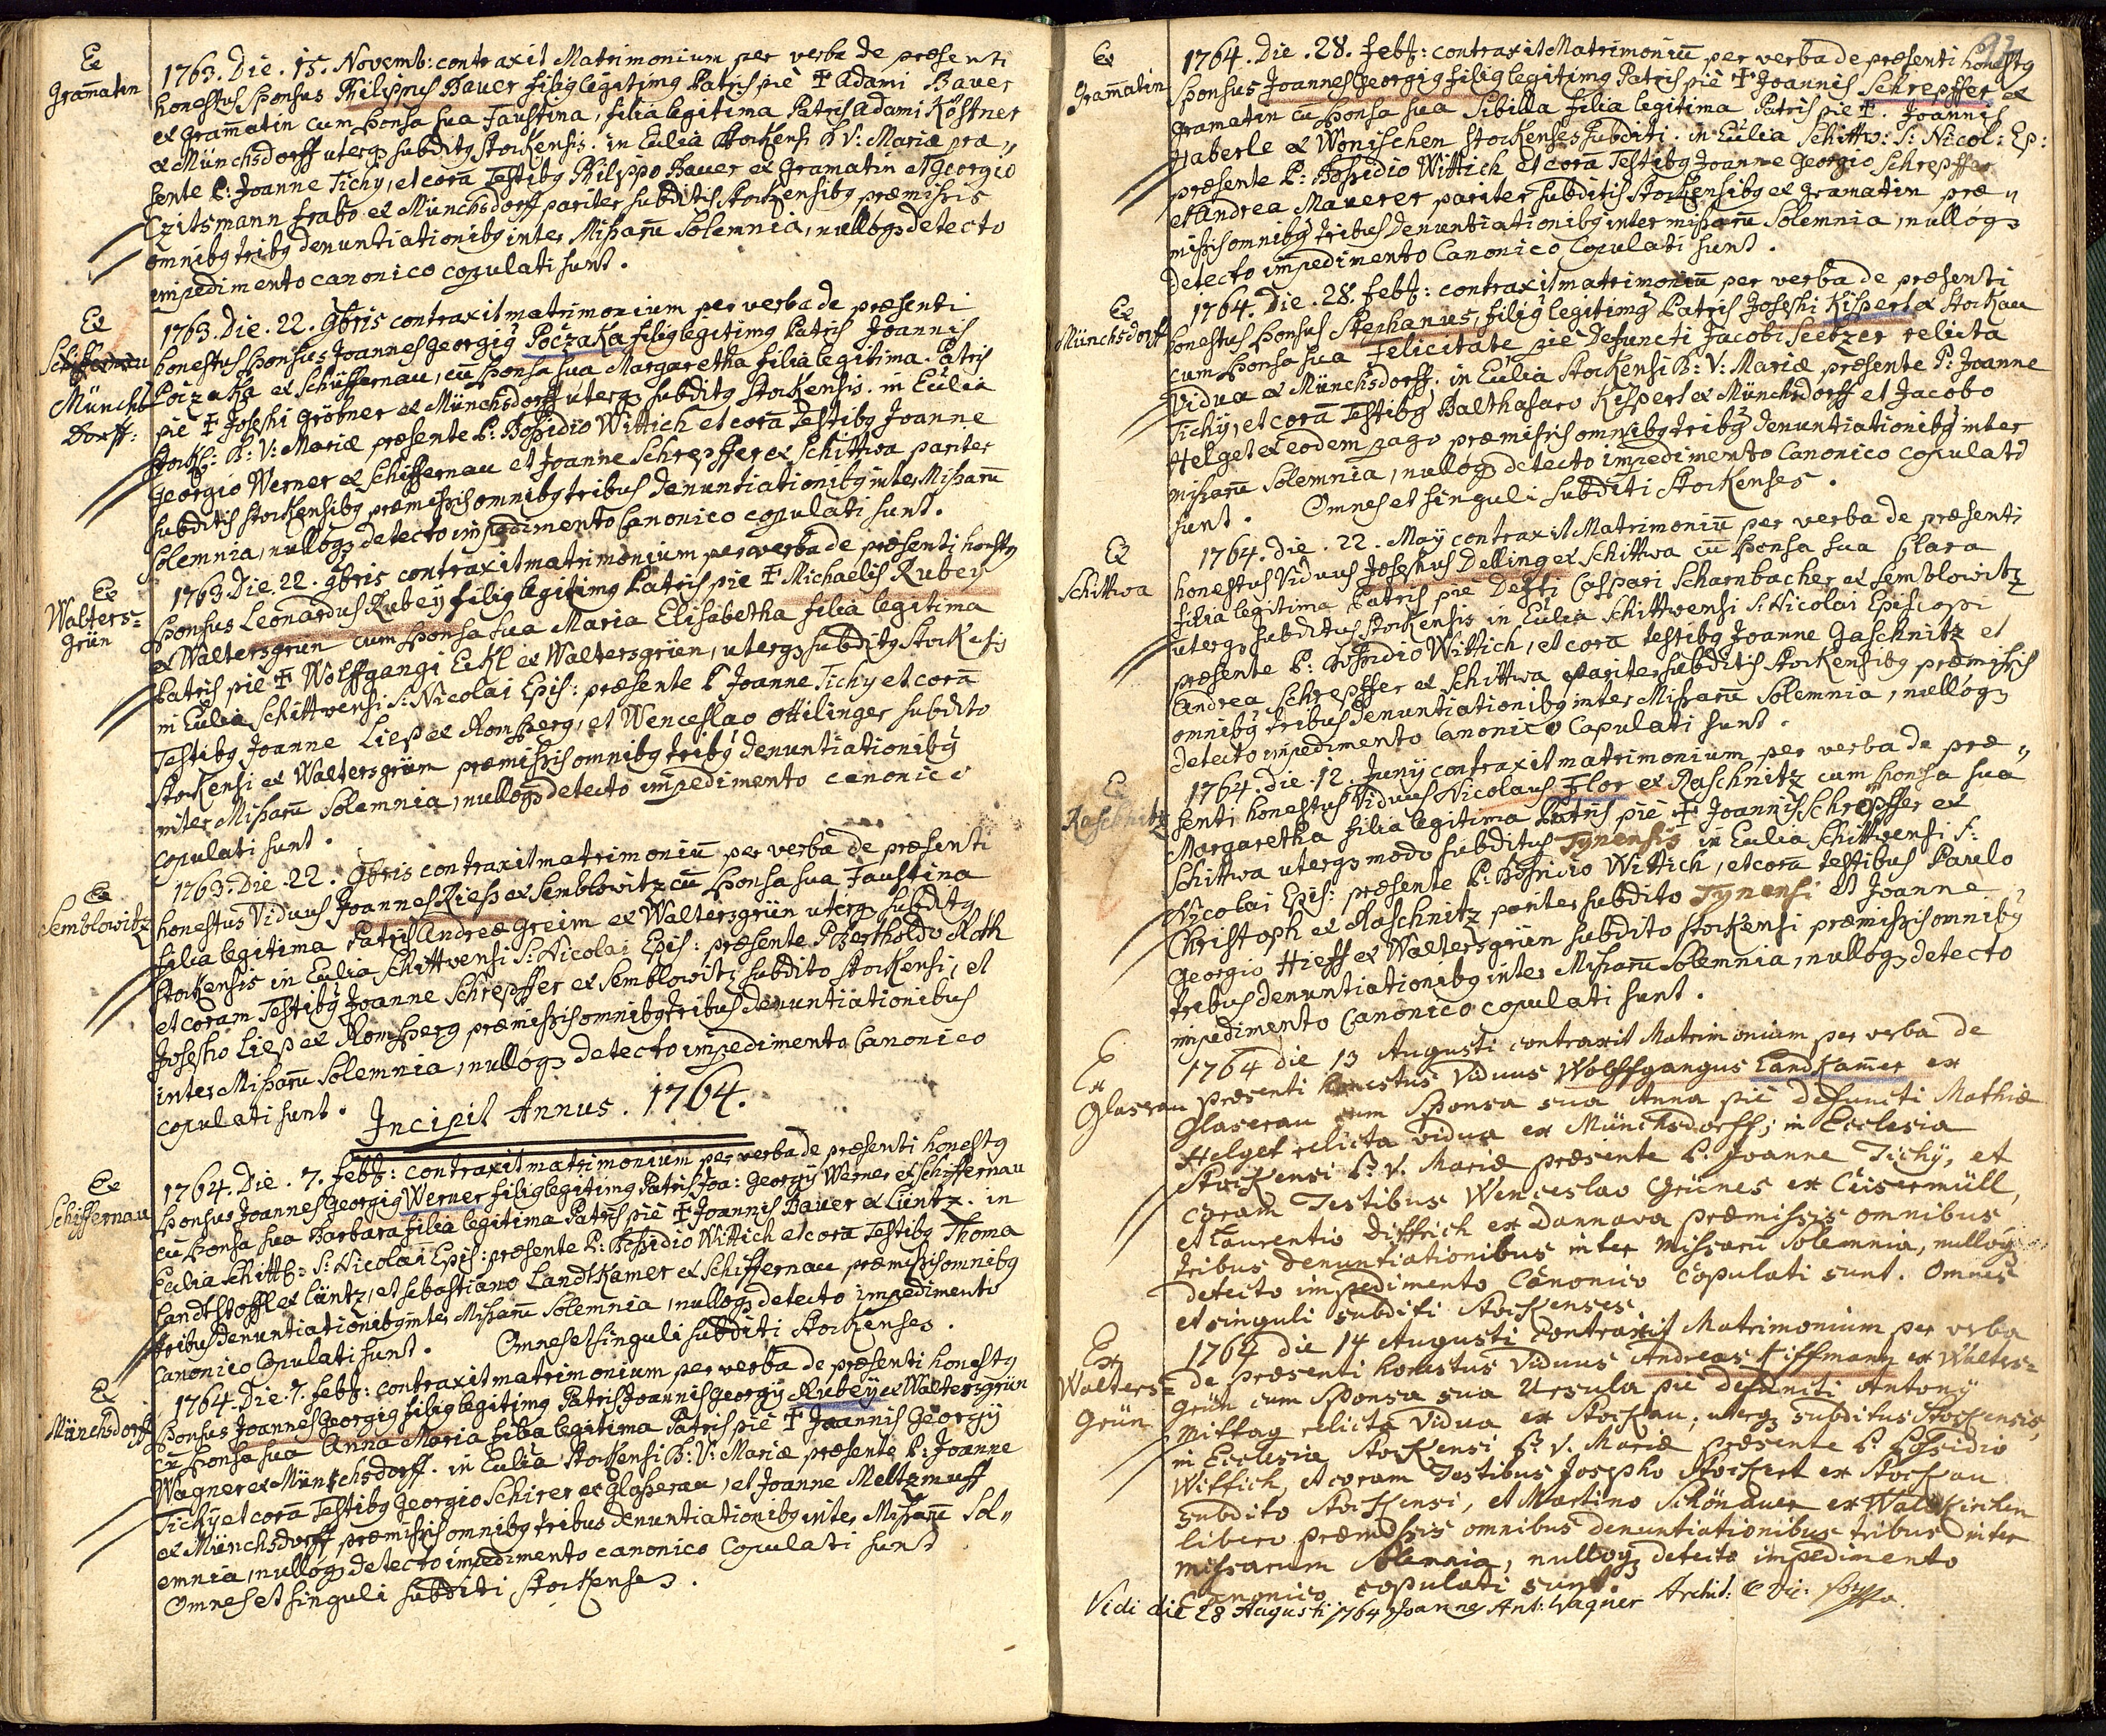 Ex
Gram̄atin
1763. Die. 15. Novemb: contraxit Matrimonium per verba de præsenti
honestus sponsus Philippus Bauer filiꝰ legitimꝰ Patris piè ✝ Adami Bauer
ex Gram̄atin cum sponsa sua Faustina, filia legitima Patris Adami Köstner
ex Münchsdorff uterqꝫ subditꝰ Stockensis. in Eccl̄ia Stockensi B V: Mariæ præ„
sente P: Joanne Tichy, et corā Testibꝰ Philippo Bauer ex Gramatin et Georgio
Czitsmann fabro ex Münchsdorff pariter subditis Stockensibꝰ præmissis
omnibꝰ tribꝰ denuntiationibꝰ inter Missarū Solemnia, nulloqꝫ detecto
impedimento canonico copulati sunt.
Ex
Schiffernau
Münchs
Dorff:
1763. Die. 22. 9bris contraxit matrimonium per verba de præsenti
honestus sponsus Joannes Georgiꝰ Poczaka filiꝰ legitimꝰ Patris Joannis
Poczaka ex Schüffernau, cū sponsa sua Margaretha filia legitima Patris
piè ✝ Josephi Gröbner ex Münchsdorff uterqꝫ subditꝰ Stockensis. in Eccl̄ia
Stock: B: V: Mariæ præsente P: Possidio Wittich et corā Testibꝰ Joanne
Georgio Werner ex Schiffernau et Joanne Schrepffer ex Schittwa pariter
subditis Stockensibꝰ præmissis omnibꝰ tribus denuntiationibꝰ inter Missarū
Solemnia, nulloqꝫ detecto impedimento Canonico copulati sunt.
Ex
Walters=
grün
1763. Die. 22. 9bris contraxit matrimonium per verba de præsenti honestꝰ
Sponsus Leonardus Rubeÿ filiꝰ legitimꝰ Patris piè ✝ Michaelis Rubeÿ
ex Waltersgrün cum sponsa sua Maria Elisabetha filia legitima
Patris piè ✝ Wolffgangi Eckl ex Waltersgrün, uterqꝫ subditꝰ Stockēsis
in Eccl̄ia Schittwensi S: Nicolai Epis: præsente P Joanne Tichy et corā
Testibꝰ Joanne Liess ex Romsperg, et Wenceslao Ottilinger subdito
Stockensi ex Waltersgrün præmissis omnibꝰ tribꝰ denuntiationibꝰ
inter Missarū Solemnia, nulloqꝫ detecto impedimento canonico
copulati sunt.
Ex
Semblowitz
1763. Die. 22. 9bris contraxit matrimoniū per verba de præsenti
honestus Viduus Joannes Riess ex Semblowitz cū sponsa sua Faustina
filia legitima Patris Andreæ Greim ex Waltersgrün uterqꝫ subditꝰ
Stockensis in Eccl̄ia Schittwensi S: Nicolai Epis: præsente P Bertholdo Roth
et coram Testibꝰ Joanne Schrepffer ex Semblowitz subdito Stockensi, et
Josepho Liess ex Romsperg præmissis omnibꝰ tribus denuntiationibus
inter Missarū Solemnia, nulloqꝫ detecto impedimento Canonico
copulati sunt.
Incipit Annus. 1764.
Ex
Schiffernau
1764. Die. 7. feb: contraxit matrimonium per verba de præsenti honestꝰ
Sponsus Joannes Georgiꝰ Werner filiꝰ legitimꝰ Patris Joa: Georgÿ Werner ex Schiffernau
cū sponsa sua Barbara filia legitima Patris piè ✝ Joannis Bauer ex Lüntz. in
Eccl̄ia Schittw: S: Nicolai Epis: præsente P: Possidio Wittich et corā Testibꝰ Thoma
Landtstoffl ex Lüntz, et Sebastiano Landtkamer ex Schiffernau præmissis omnibꝰ
tribus denuntiationibꝰ inter Missarū Solemnia, nulloqꝫ detecto impedimento
Canonico Copulati sunt. Omnes et singuli subditi Stockenses.
Ex
Münchsdorff
1764. Die. 7. feb: contraxit matrimonium per verba de præsenti honestꝰ
Sponsus Joannes Georgiꝰ filiꝰ legitimꝰ Patris Joannis Georgÿ Rubeÿ ex Waltersgrün
cū sponsa sua Anna Maria filia legitima Patris piè ✝ Joannis Georgÿ
Wagner ex Münchsdorff. in Eccl̄ia Stockensi B: V: Mariæ præsente P: Joanne
Tichÿ et corā Testibꝰ Georgio Schirer ex Glasserau, et Joanne Meltzmuff
ex Münchsdorff præmissis omnibꝰ tribus denuntiationibꝰ inter Missarū Sol„
emnia, nulloqꝫ detecto impedimento canonico Copulati sunt
Omnes et singuli subditi Stockenses.
92
Ex
Gram̄atin
1764. Die. 28. feb: contraxit Matrimoniū per verba de præsenti honestꝰ
Sponsus Joannes Georgiꝰ filiꝰ legitimꝰ Patris piè ✝ Joannis Schrepffer ex
Gramatin cū sponsa sua Sibilla filia legitima Patris piè ✝. Joannis
Haberle ex Wonischen Stockenses subditi. in Eccl̄ia Schittw: S: Nicol: Ep:
præsente P: Possidio Wittich et corā Testibꝰ Joanne Georgio Schrepffer
et Andrea Maurer pariter subditis Stockensibꝰ ex Gramatin præ„
missis omnibꝰ tribus Denuntiationibꝰ inter missarū Solemnia, nulloqꝫ
detecto impedimento Canonico Copulati sunt.
Ex
Münchsdorff
1764. Die. 28. feb: contraxit matrimoniū per verba de præsenti
honestus sponsus Stephanus, filiꝰ legitimꝰ Patris Josephi Kisperl ex Stockau
cum sponsa sua Felicitate piè Defuncti Jacobi Seitzer relicta
Vidua ex Münchsdorff. in Eccl̄ia Stockensi B: V: Mariæ præsente P: Joanne
Tichÿ, et corā Testibꝰ Balthasaro Kisperl ex Münchsdorff et Jacobo
Helget ex eodem pago præmissis omnibꝰ tribꝰ denuntiationibꝰ inter
missarū Solemnia, nulloqꝫ detecto impedimento Canonico copulati
sunt. Omnes et singuli subditi Stockenses.
Ex
Schittwa
1764. Die. 22. May contraxit Matrimoniū per verba de præsenti
honestus Viduus Josephus Delling ex Schittwa cū sponsa sua Clara
filia legitima Patris piè Defti Caspari Scharnbacher ex Semblowitz
uterqꝫ subditus Stockensis in Eccl̄ia Schittwensi S: Nicolai Episcopi
præsente P: Possidio Wittich, et corā testibꝰ Joanne Gaschnitz et
Andrea Schrepffer ex Schittwa pariter subditis Stockensibꝰ præmissis
omnibꝰ tribus denuntiationibꝰ inter Missarū Solemnia, nulloqꝫ
detecto impedimento Canonico Copulati sunt.
Ex
Raschnitz
1764. die. 12. Junÿ contraxit matrimonium per verba de præ„
senti honestus Viduus Nicolaus Flor ex Raschnitz cum sponsa sua
Margaretha filia legitima Patris piè ✝ Joannis Schrepffer ex
Schittwa uterqꝫ modo subditus Tynensis in Eccl̄ia Schittwensi S:
Nicolai Epis: præsente P: Possidio Wittich, et corā testibus Paulo
Christoph ex Raschnitz pariter subdito Tynensi et Joanne
Georgio Hieff ex Waltersgrün subdito Stockensi præmissis omnibꝰ
tribus denuntiationibꝰ inter Missarū Solemnia, nulloqꝫ detecto
impedimento Canonico copulati sunt.
Ex
Glaserau
1764 die 13 Augusti contraxit Matrimonium per verba de
præsenti honestus Viduus Wolffgangus Landkam̄er ex
Glaserau cum Sponsa sua Anna piè defuncti Mathiæ
Helget relicta vidua ex Münchsdorff; in Ecclesia
Stockensi B. V. Mariæ præsente P. Joanne Tichÿ, et
coram Testibus Wenceslao Grünes ex Eisermüll,
et Laurentio Diffrich ex Dannava præmissis omnibus
tribus denuntiationibus inter Missarū Solemnia, nulloqꝫ
detecto impedimento Canonico Copulati sunt. Omnes
et singuli subditi Stockenses.
Ex
Walters=
Grün
1764 die 14 Augusti contraxit Matrimonium per verba
de præsenti honestus Viduus Andreas Kiffmann ex Walters=
Grün cum Sponsa sua Ursula piè defuncti Antonÿ
Mittag relicta vidua ex Stockau; uterqꝫ subditus Stockensis,
in Ecclesia Stockensi B. V. Mariæ præsente P. Possidio
Wittich, et coram Testibus Josepho Stockert ex Stockau
subdito Stockensi, et Martino Schönauer ex Waldkirchen
libero præmissis omnibus denuntiationibus tribus inter
Missarum Solemnia, nulloqꝫ detecto impedimento
Canonico copulati sunt.
Vidi die 28 Augusti 1764 Joannes Ant: Wagner